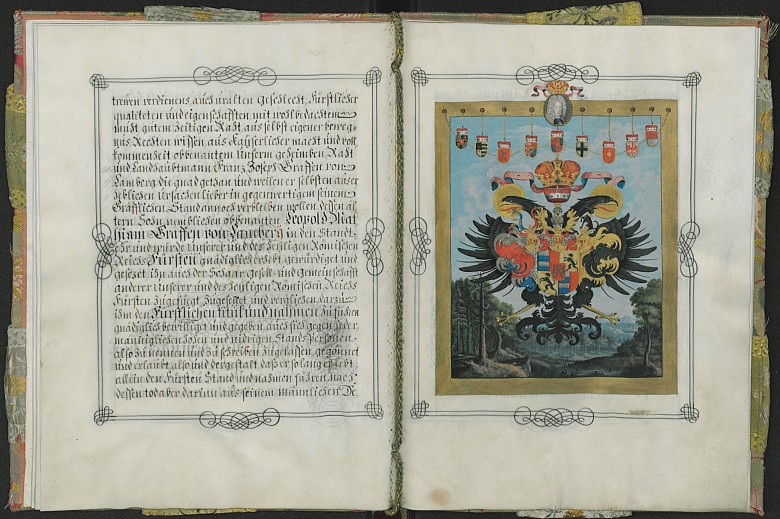 trewen verdienens, auch uralten Geschlecht, Fürstlicher
qualiteten und eigenschafften mit wohlbedachtem
mueth gutem zeitigen Rath aus selbst eigener beweg-
nus Rechten wissen aus Kayserlicher macht und voll
kommenheit obbenantem Unserm geheimben Rath
und Landshaubtmann Franz Joseph Graffen von
Lamberg die gnad gethan und weilen er selbsten auser
heblichen Ursachen lieber in gegenwertigem seinem
Gräfflichen Stand annoch verbleiben wollen dessen äl-
tern Sohn, mehrbesagten obbenanten Leopold Mat-
hiam Graffen von Lamberg in den Standt
Ehr und würde Unserer und des Heyligen Römischen
Reichs Fürsten gnädiglich erhebt, gewürdiget und
gesezt, ihn auch der Schaar, gesell- und Gemeinschafft
anderer Unserer und des Heyligen Römischen Reichs
Fürsten zugefüegt, zugesellet und verglichen, darzu
ihm den Fürstlichen titul und nahmen zuführen
gnädiglich bewilliget und gegeben, auch sich gegen jeder-
männiglichen hohen und nidrigen Stands Personen
also zu nennen und zu schreiben zugelassen, gegönnet
und erlaubt, also und dergestalt, daß er so lang er lebt
allein den Fürsten Stand und nahmen führen, nach
dessen tod aber darinn aus seinem männlichen Le